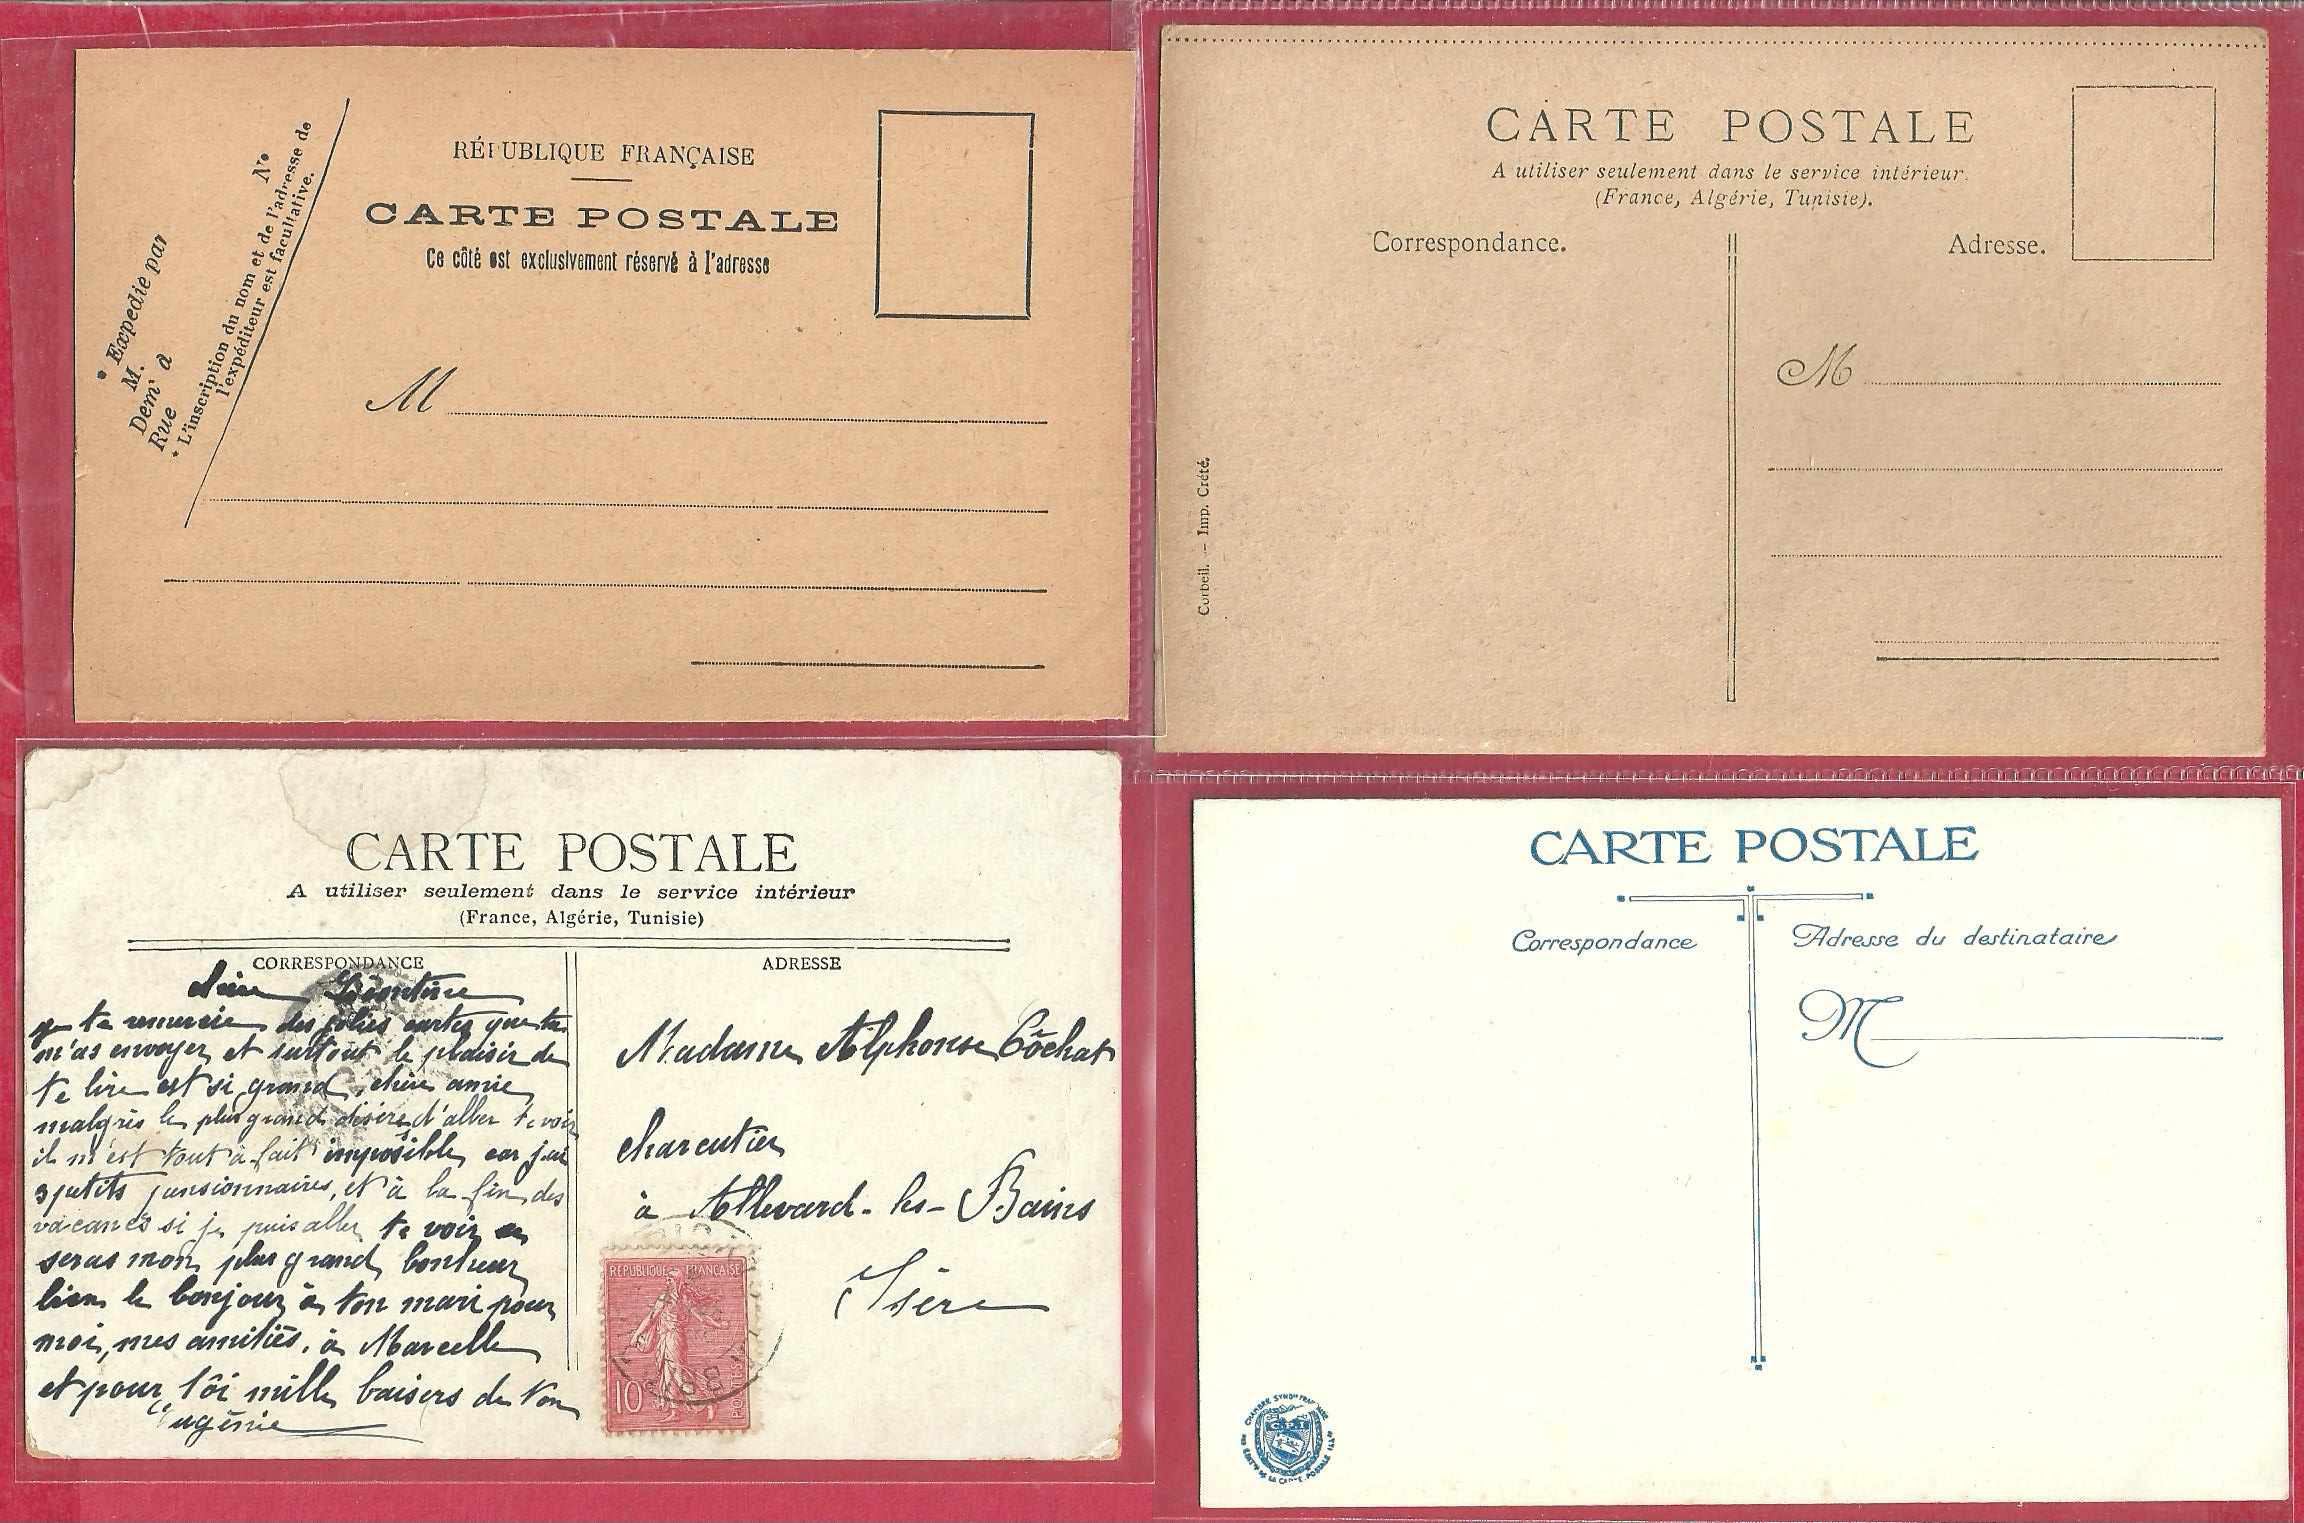 RÉPUBLIQUE FRANÇAISE
CARTE POSTALE
Ce côté est exclusivement réservé à l'adresse
* Expedie par
M.
Demt a
Rue
No
* L'inscription du nom et de l'adresse de
l'expéditeur est facultative.
M
CARTE POSTALE
A utiliser seulement dans le service intérieur.
(France, Algérie, Tunisie).
Correspondance.
Adresse.
M
Corbeil. — Imp. Crété.
CARTE POSTALE
A utiliser seulement dans le service intérieur
(France, Algérie, Tunisie)
CORRESPONDANCE
Léontine
je te remercie des jolies cartes que tu
m'as envoyer et surtout le plaisir de
te lire est si grand, chère amie,
malgrès le plus grand désire d'aller te voir
il m'est tout à fait impossible car j'ai
3 petits pensionnaires, et à la fin des
vacances si je puis aller te voir
seras mon plus grand bonheur
bien le bonjour à ton mari pour
moi, mes amitiés, à Marcelle
et pour tôi mille baisers de ton
Eugénie
ADRESSE
Madame Alphonse Côchat
charcutier
à Allevard-les-Bains
Isère
REPUBLIQUE FRANÇAISE
10
POSTES
CARTE POSTALE
Correspondance
Adresse du destinataire
M
CHAMBRE SYNDle FRANÇAISE
DES EDITrs DE LA CARTE POSTALE